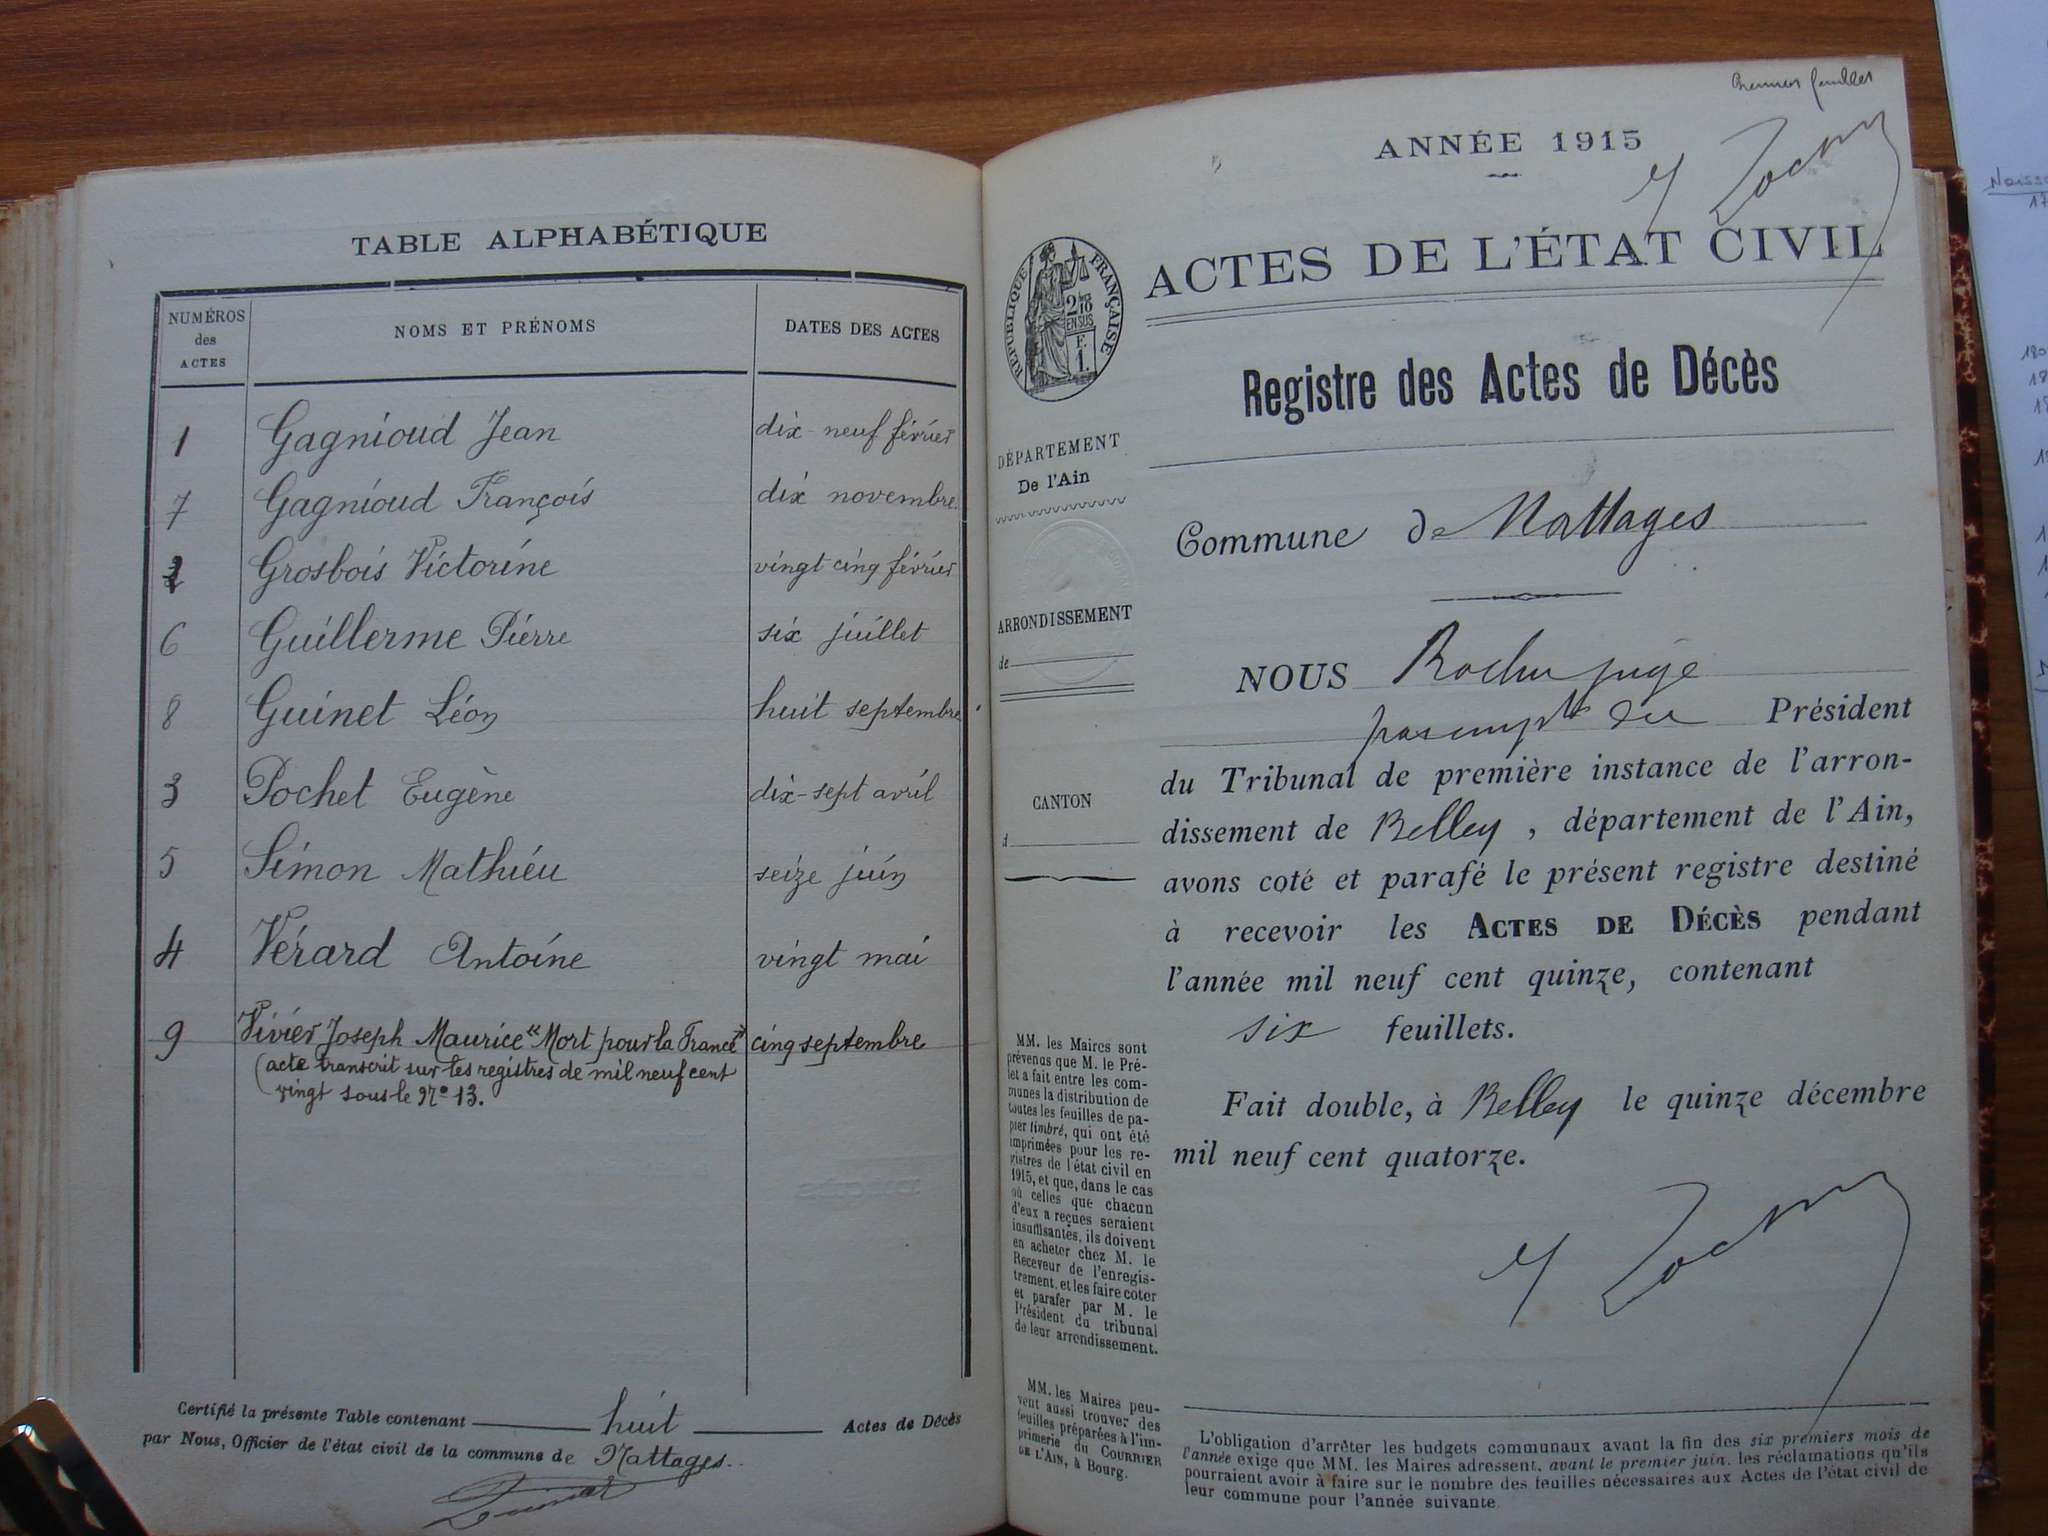 TABLE ALPHABÉTIQUE
NUMÉROS des ACTES NOMS ET PRÉNOMS DATES DES ACTES
1 Gagnioud Jean dix-neuf février
7 Gagnioud François dix novembre
2 Grosbois Victorine vingt cinq février
6 Guillerme Pierre six juillet
8 Guinet Léon huit septembre
3 Pochet Eugène dix-sept avril
5 Simon Mathieu seize juin
4 Vérard Antoine vingt mai
9 Vivier Joseph Maurice "Mort pour la France" cinq septembre
(acte transcrit sur les registres de mil neuf cent
vingt sous le No 13.
Certifié la présente Table contenant huit Actes de Décès
par Nous, Officier de l'état civil de la commune de Nattages.
ANNÉE 1915
ACTES DE L'ÉTAT CIVIL
RÉPUBLIQUE FRANÇAISE
2/10
EN SUS
F.
1.
Registre des Actes de Décès
DÉPARTEMENT
De l'Ain
Commune de Nattages
ARRONDISSEMENT
de
NOUS juge
Président
du Tribunal de première instance de l'arron-
CANTON
d
dissement de Belley, département de l'Ain,
avons coté et parafé le présent registre destiné
à recevoir les ACTES DE DÉCÈS pendant
l'année mil neuf cent quinze, contenant
six feuillets.
Fait double, à Belley le quinze décembre
mil neuf cent quatorze.
MM. les Maires sont
prévenus que M. le Pré-
let a fait entre les com-
munes la distribution de
toutes les feuilles de pa-
pier timbré, qui ont été
imprimées pour les re-
gistres de l'état civil en
1915, et que, dans le cas
où celles que chacun
d'eux a reçues seraient
insuffisantes, ils doivent
en acheter chez M. le
Receveur de l'enregis-
trement, et les faire coter
et parafer par M. le
Président du tribunal
de leur arrondissement.
MM. les Maires peu-
vent aussi trouver des
feuilles préparées à l'im-
primerie du COURRIER
DE L'AIN, à Bourg.
L'obligation d'arrêter les budgets communaux avant la fin des six premiers mois de
l'année exige que MM. les Maires adressent, avant le premier juin, les réclamations qu'ils
pourraient avoir à faire sur le nombre des feuilles nécessaires aux Actes de l'état civil de
leur commune pour l'année suivante.